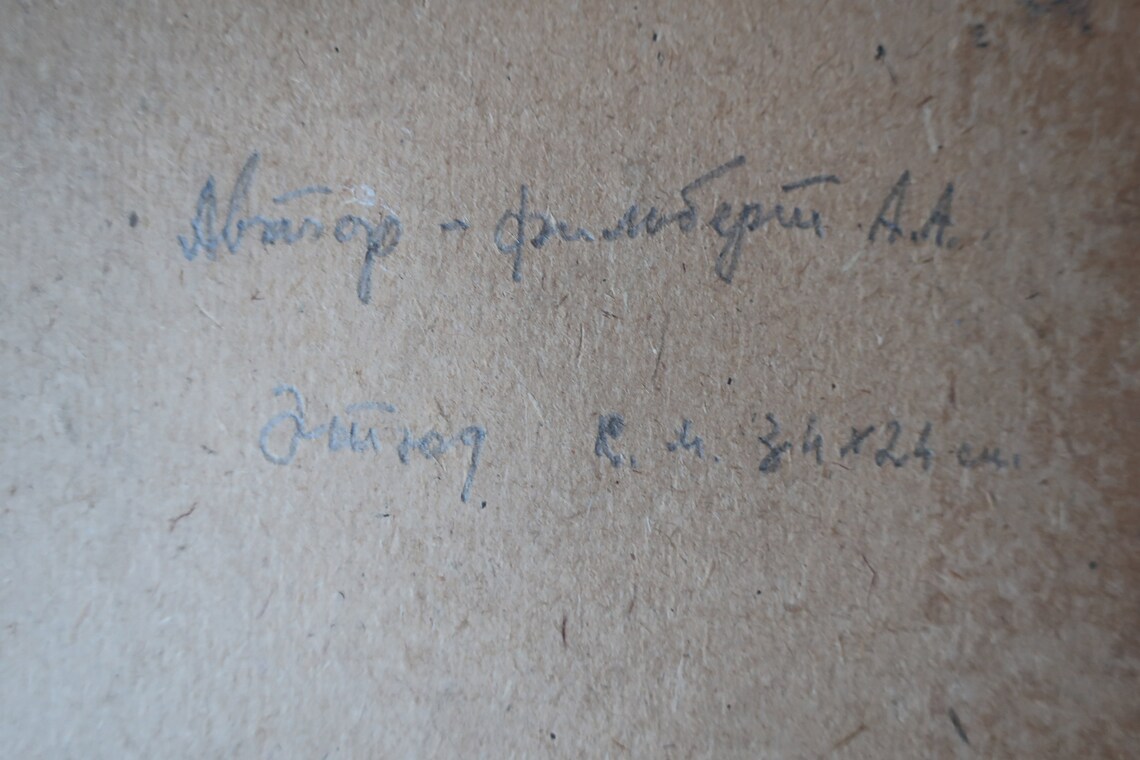 Автор - Фильберт А.А.
Этюд к. м. 34х24 см.